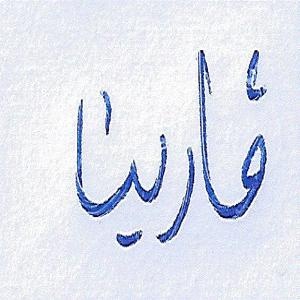 فارينا